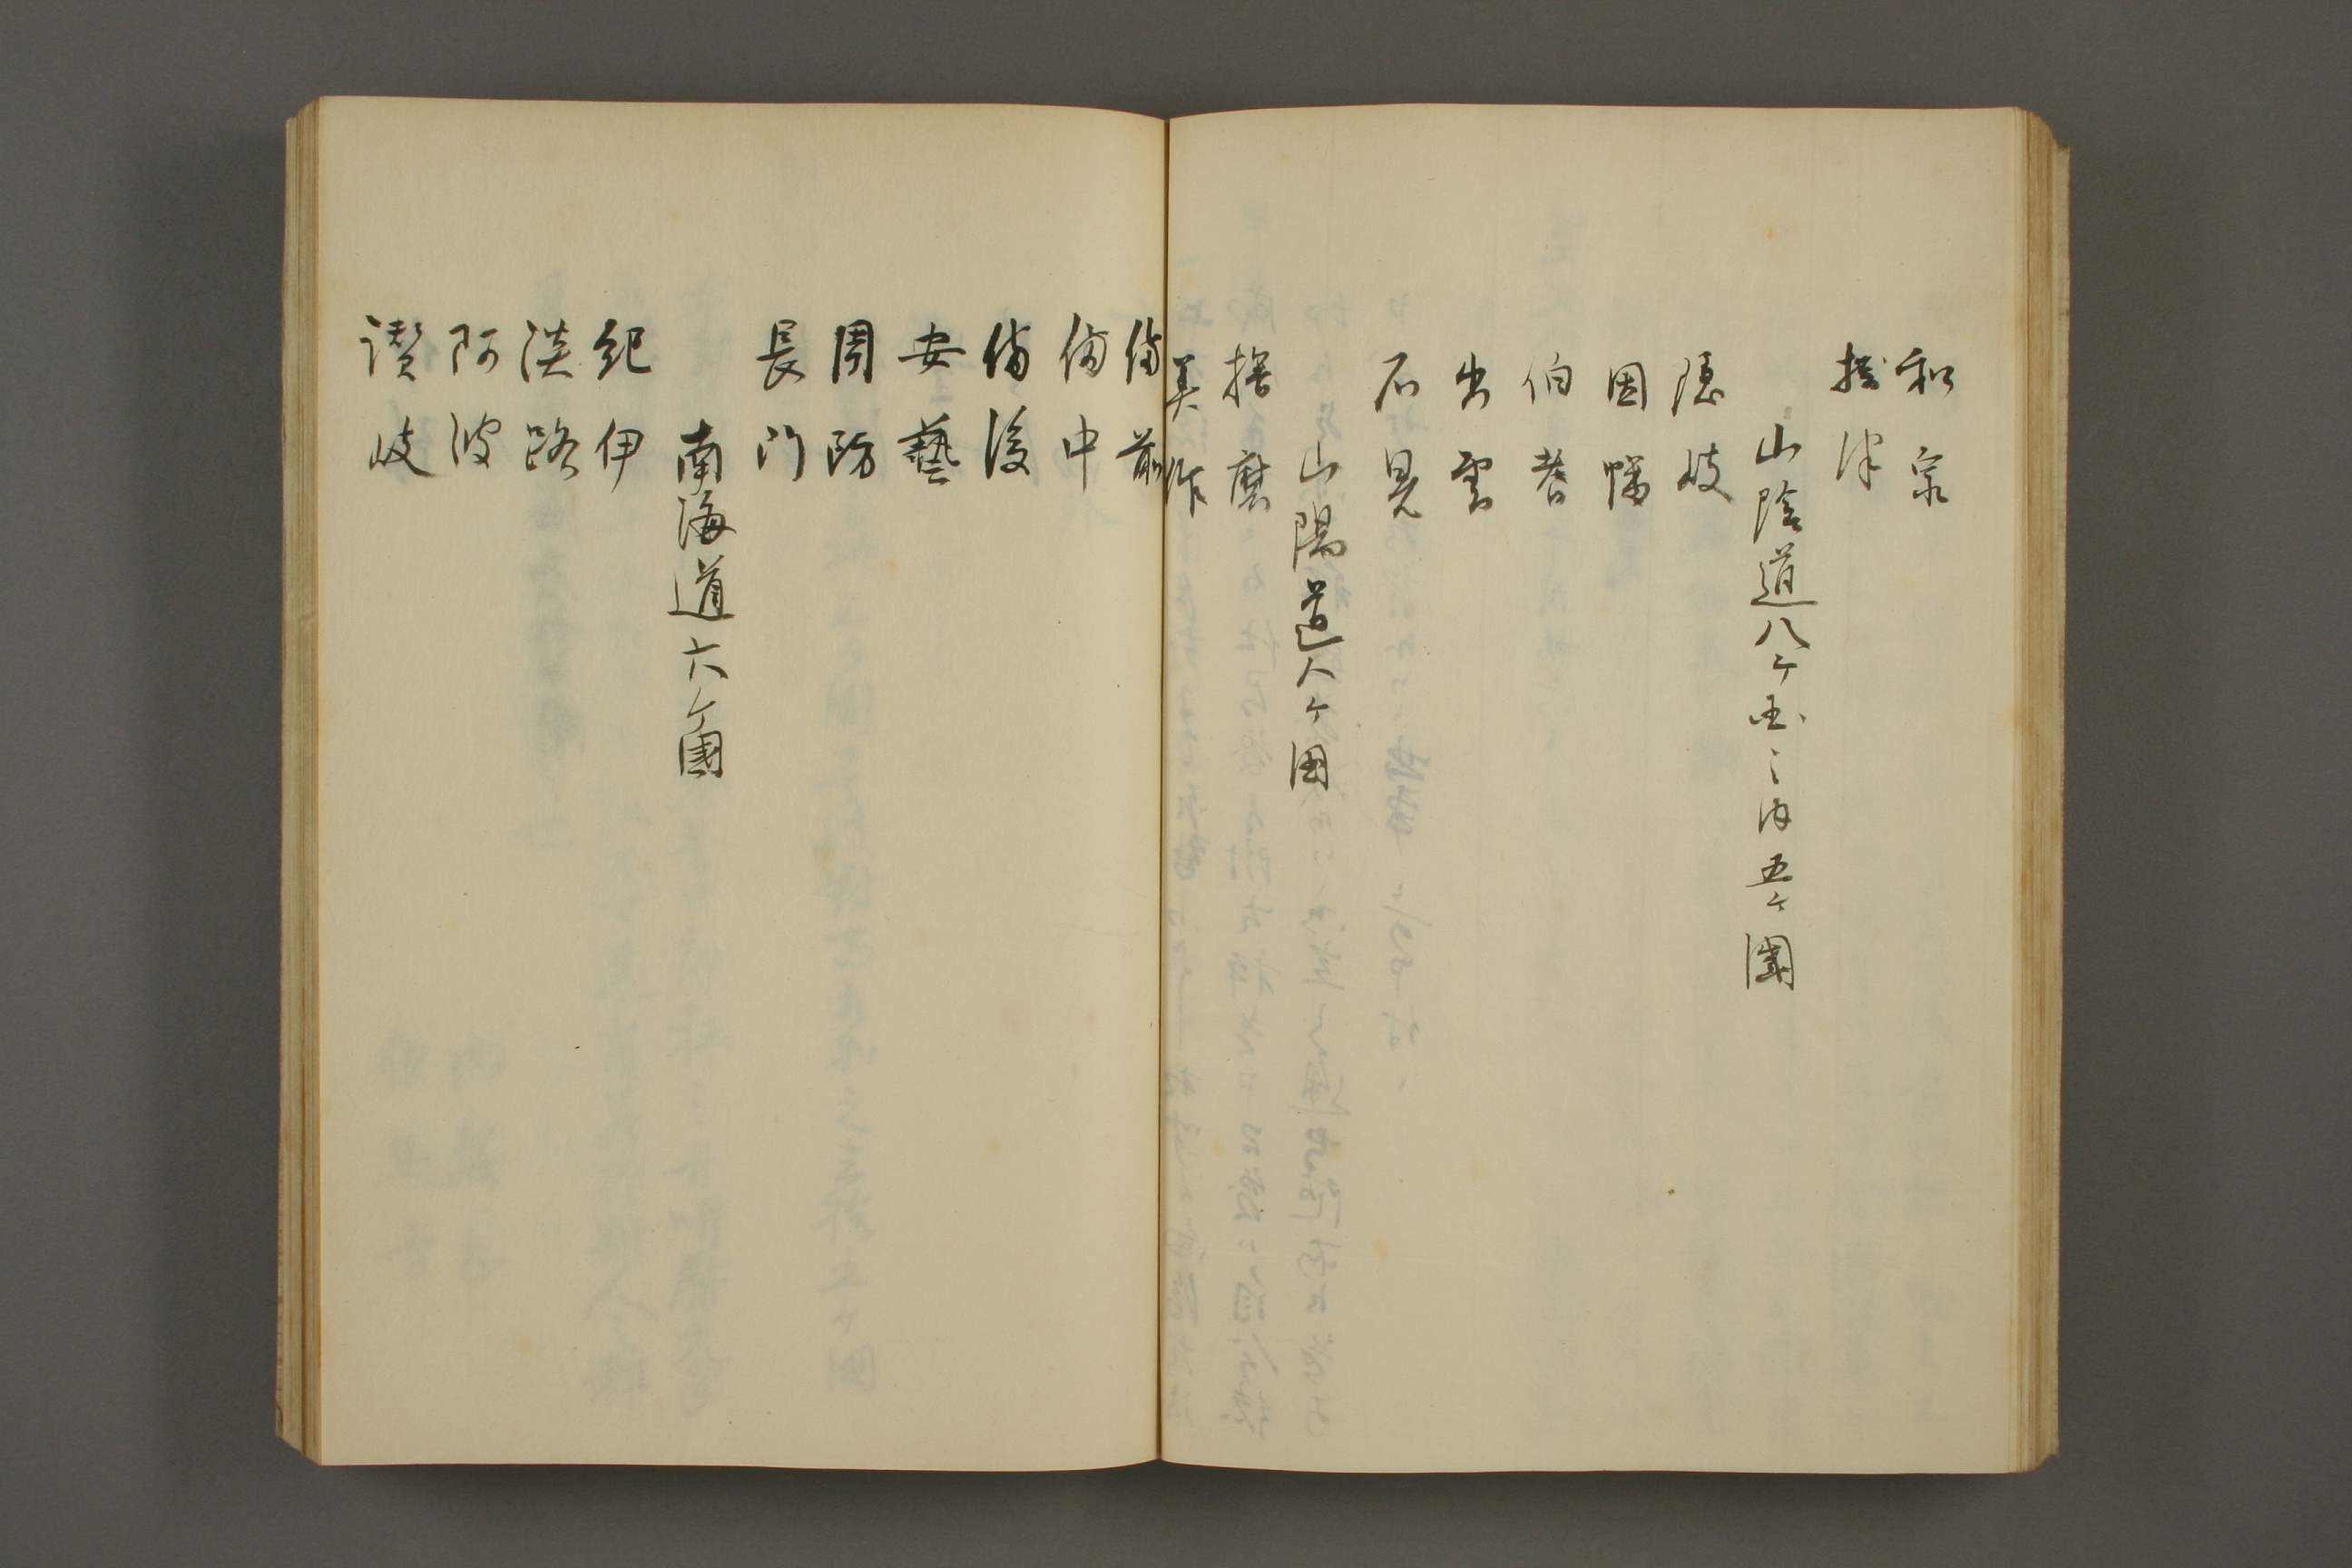 和泉
摂津
山陰道八ケ国之内五ケ國
隠岐
因幡
伯耆
出雲
石見
山陽道八ケ国
播磨
美作
備前
備中
備後
安藝
周防
長門
南海道六ケ國
紀伊
淡路
阿波
讃岐